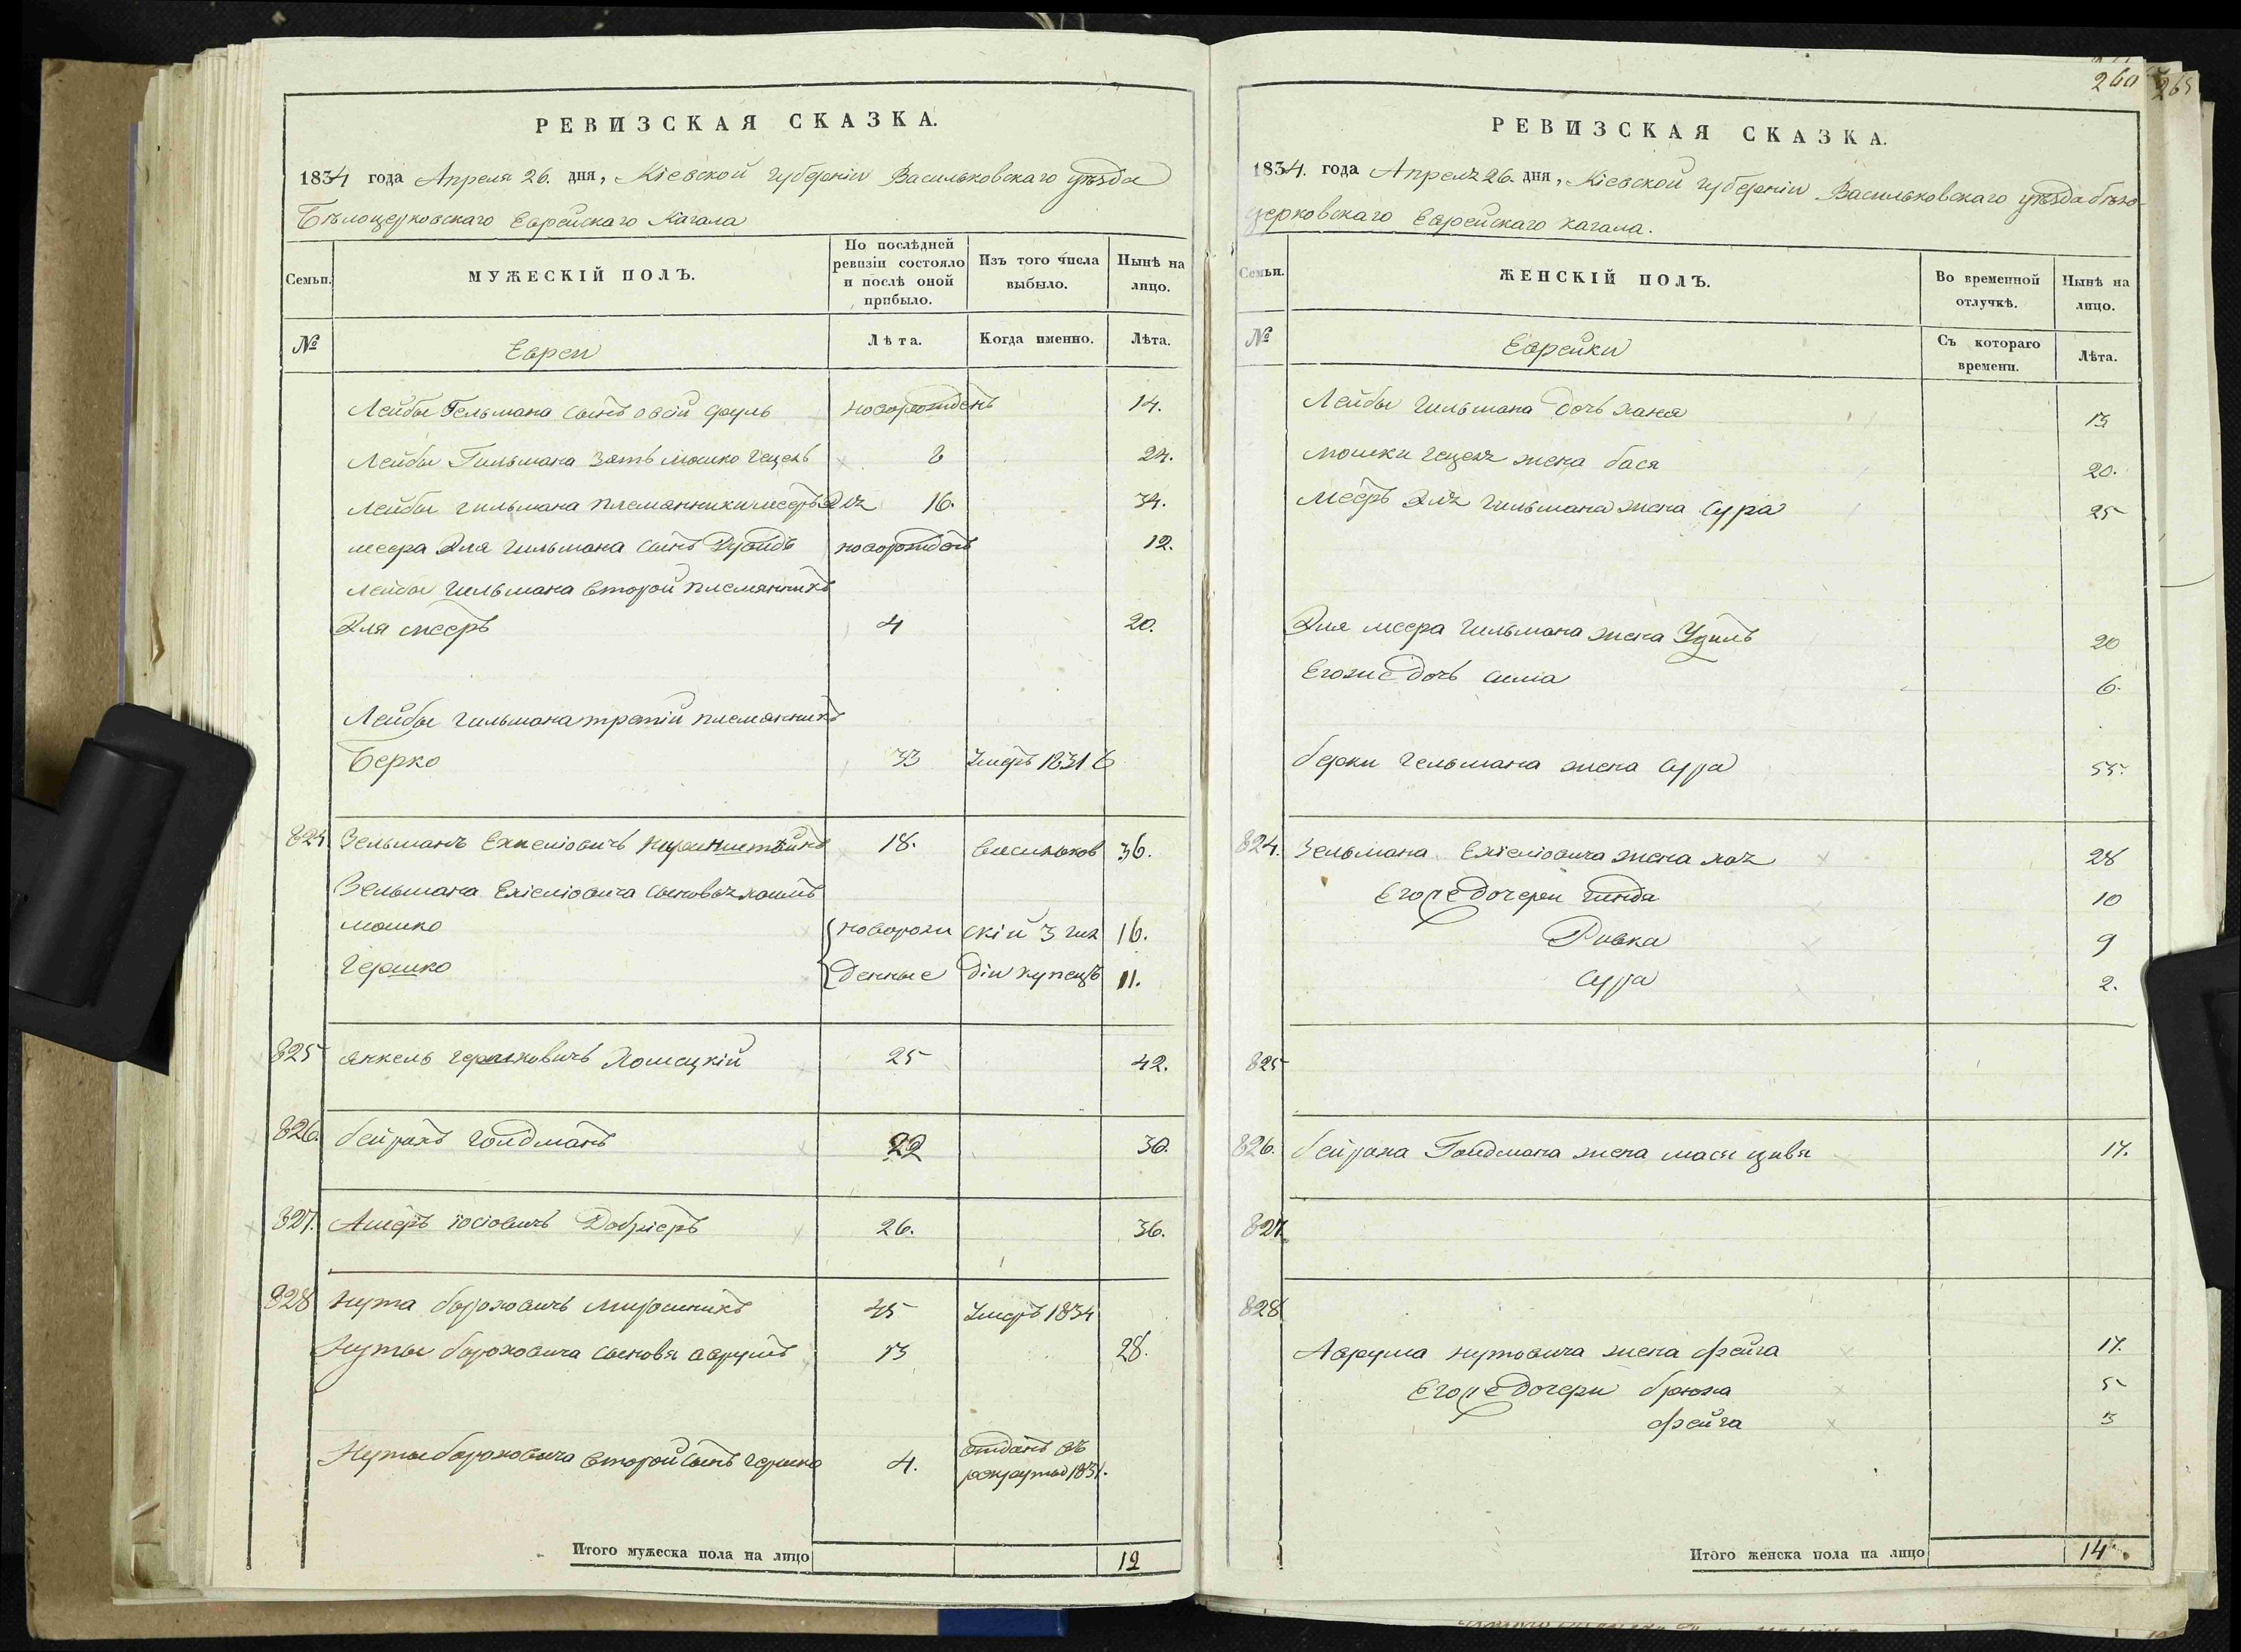 260 265
РЕВИЗСКАЯ СКАЗКА.
1834 года Апреля 26. дня, Кіевской губерніи Васильковскаго уѣзда
Бѣлоцерковскаго Еврейскаго Кагала
Семьи.
МУЖЕСКІЙ ПОЛЪ.
По послѣдней ревизіи состояло и послѣ оной прибыло.
Изъ того числа выбыло.
Нынѣ на лицо.
№
Евреи
Лѣта.
Когда именно.
Лѣта.
Лейбы Гельмана сынъ новорожденъ 14.
Лейбы Гильмана зять Мошко Гецель 24.
Лейбы Гильмана племянники Мееръ Эля 16. 34.
Меера Эля Гильмана сынъ Дувидъ новорожденъ 12.
Лейбы Гильмана второй племянникъ
Эля Мееръ 4 20.
Лейбы Гильмана третій племянникъ
Берко 33 Умеръ 1831
824 Зельманъ Ехиеліовичъ 18. Васильков 36.
Зельмана Ехіеліовича сыновья
Мошко новорож скій 3 гил 16.
Гершко денные діи купецъ 11.
825 Янкель Гершковичъ 25 42.
826. Бейрахъ Гойдманъ 22 30.
827. Ашеръ Іосіовичъ Добріеръ 26. 36.
828 Нута Борохович Мирошникъ 45 Умеръ 1834
Нуты Бороховича сыновя Аврумъ 13 28.
Нуты Бороховича второй сынъ Гершко 4. отданъ въ
рекруты 1831.
Итого мужеска пола на лицо 12
РЕВИЗСКАЯ СКАЗКА.
1834. года Апреля 26. дня, Кіевской губерніи Васильковскаго уѣзда бѣло-
церковскаго Еврейскаго кагала.
Семьи.
ЖЕНСКІЙ ПОЛЪ.
Во временной отлучкѣ.
Нынѣ на лицо.
№
Еврейки
Съ котораго времени.
Лѣта.
Лейбы Гильмана дочь Хана 13
Мошки Гецеля жена Бася 20.
Меера Эля Гильмана жена Сура 25
Эля Меера Гильмана жена Удиль 20
Егоже дочь Симa 6.
Берки Гельмана жена Сура 55.
824. Зельмана Ехіеліовича жена Хая 28
Егоже дочери Гинда 10
Ривка 9
Сура 2.
825
826. Бейраха Гойдмана жена Мася Цивя 17.
827.
828
Аврума Нутовича жена Фейга 17.
Егоже дочери Брюха 5
Фейга 3
Итого женска пола на лицо 14